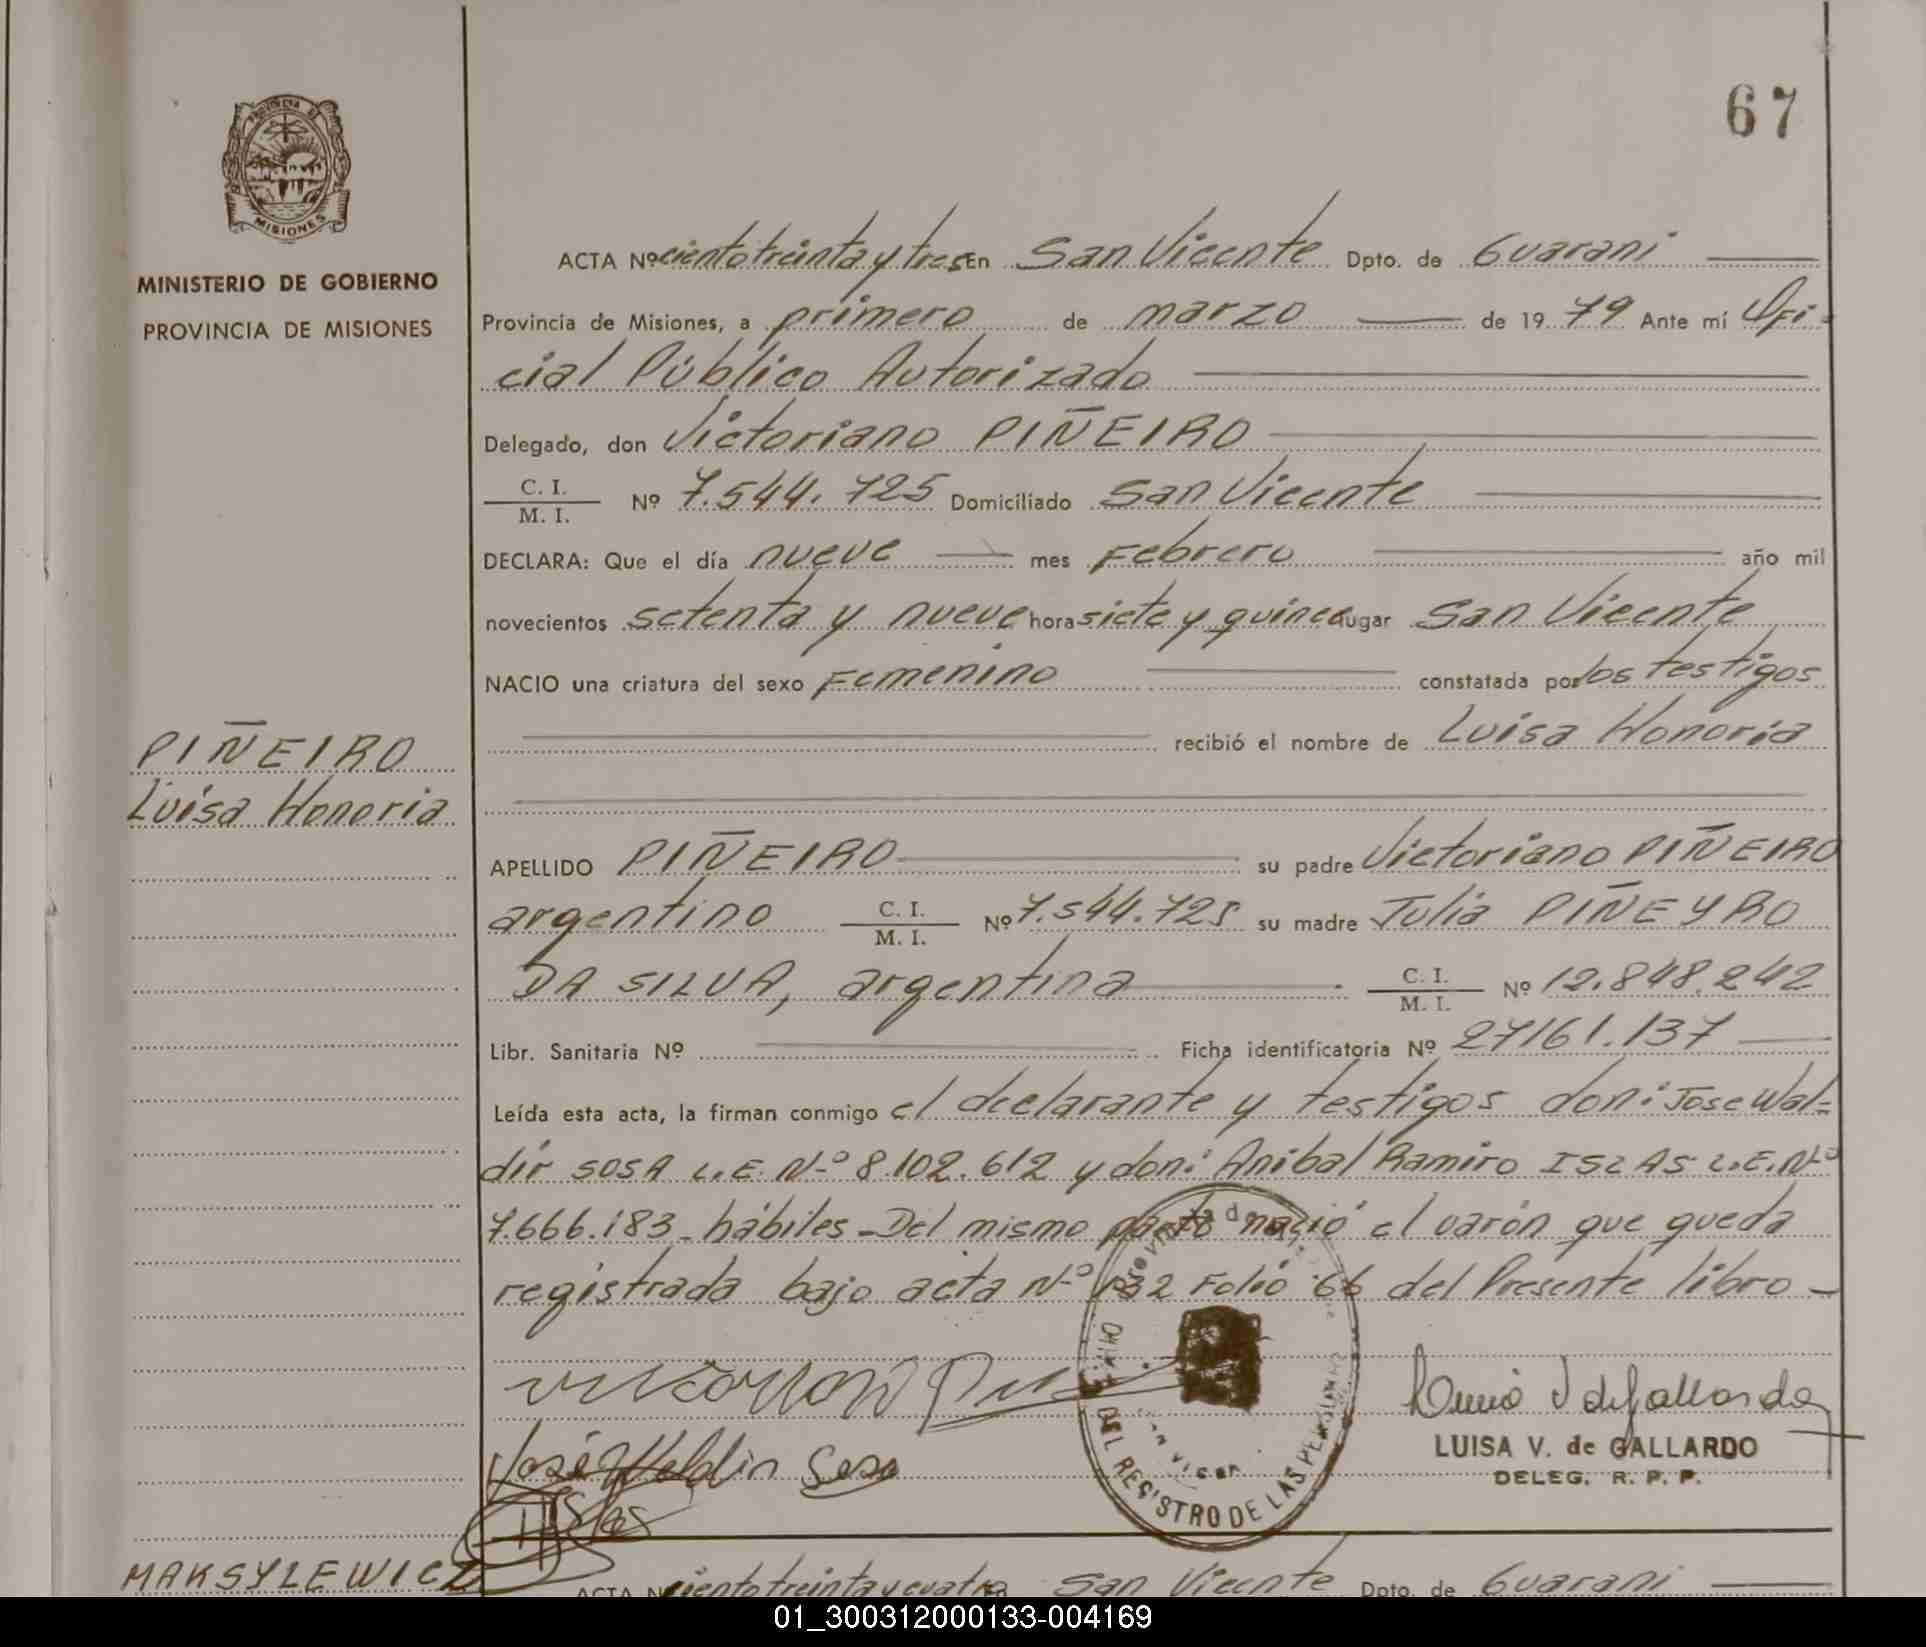 67
PROVINCIA DE
MISIONES
MINISTERIO DE GOBIERNO
PROVINCIA DE MISIONES
ACTA Nº ciento treinta y tres En San Vicente Dpto. de Guaraní
Provincia de Misiones, a primero de marzo de 19 79 Ante mí Ofi-
cial Público Autorizado
Delegado, don Victoriano PIÑEIRO
C. I. / M. I. Nº 7.544.725 Domiciliado San Vicente
DECLARA: Que el día nueve mes Febrero año mil
novecientos setenta y nueve hora siete y quince lugar San Vicente
NACIO una criatura del sexo Femenino constatada por los testigos
recibió el nombre de Luisa Honoria
PIÑEIRO
Luisa Honoria
APELLIDO PIÑEIRO su padre Victoriano PIÑEIRO
argentino C. I. / M. I. Nº 7.544.725 su madre Julia PIÑEYRO
DA SILVA, argentina C. I. / M. I. Nº 12.848.242
Libr. Sanitaria Nº Ficha identificatoria Nº 27161.137
Leída esta acta, la firman conmigo el declarante y testigos don: Jose Wal-
dir SOSA L.E. Nº 8.102.612 y don: Anibal Ramiro ISLAS L.E. Nº
7.666.183 - hábiles - Del mismo parto nació el varón que queda
registrada bajo acta Nº 132 Folio 66 del Presente libro -
José Waldir Sosa
Islas
DEL REGISTRO DE LAS PERSONAS
LUISA V. de GALLARDO
DELEG. R. P. P.
MAKSYLEWICZ
ACTA Nº ciento treinta y cuatro En San Vicente Dpto. de Guaraní
01_300312000133-004169